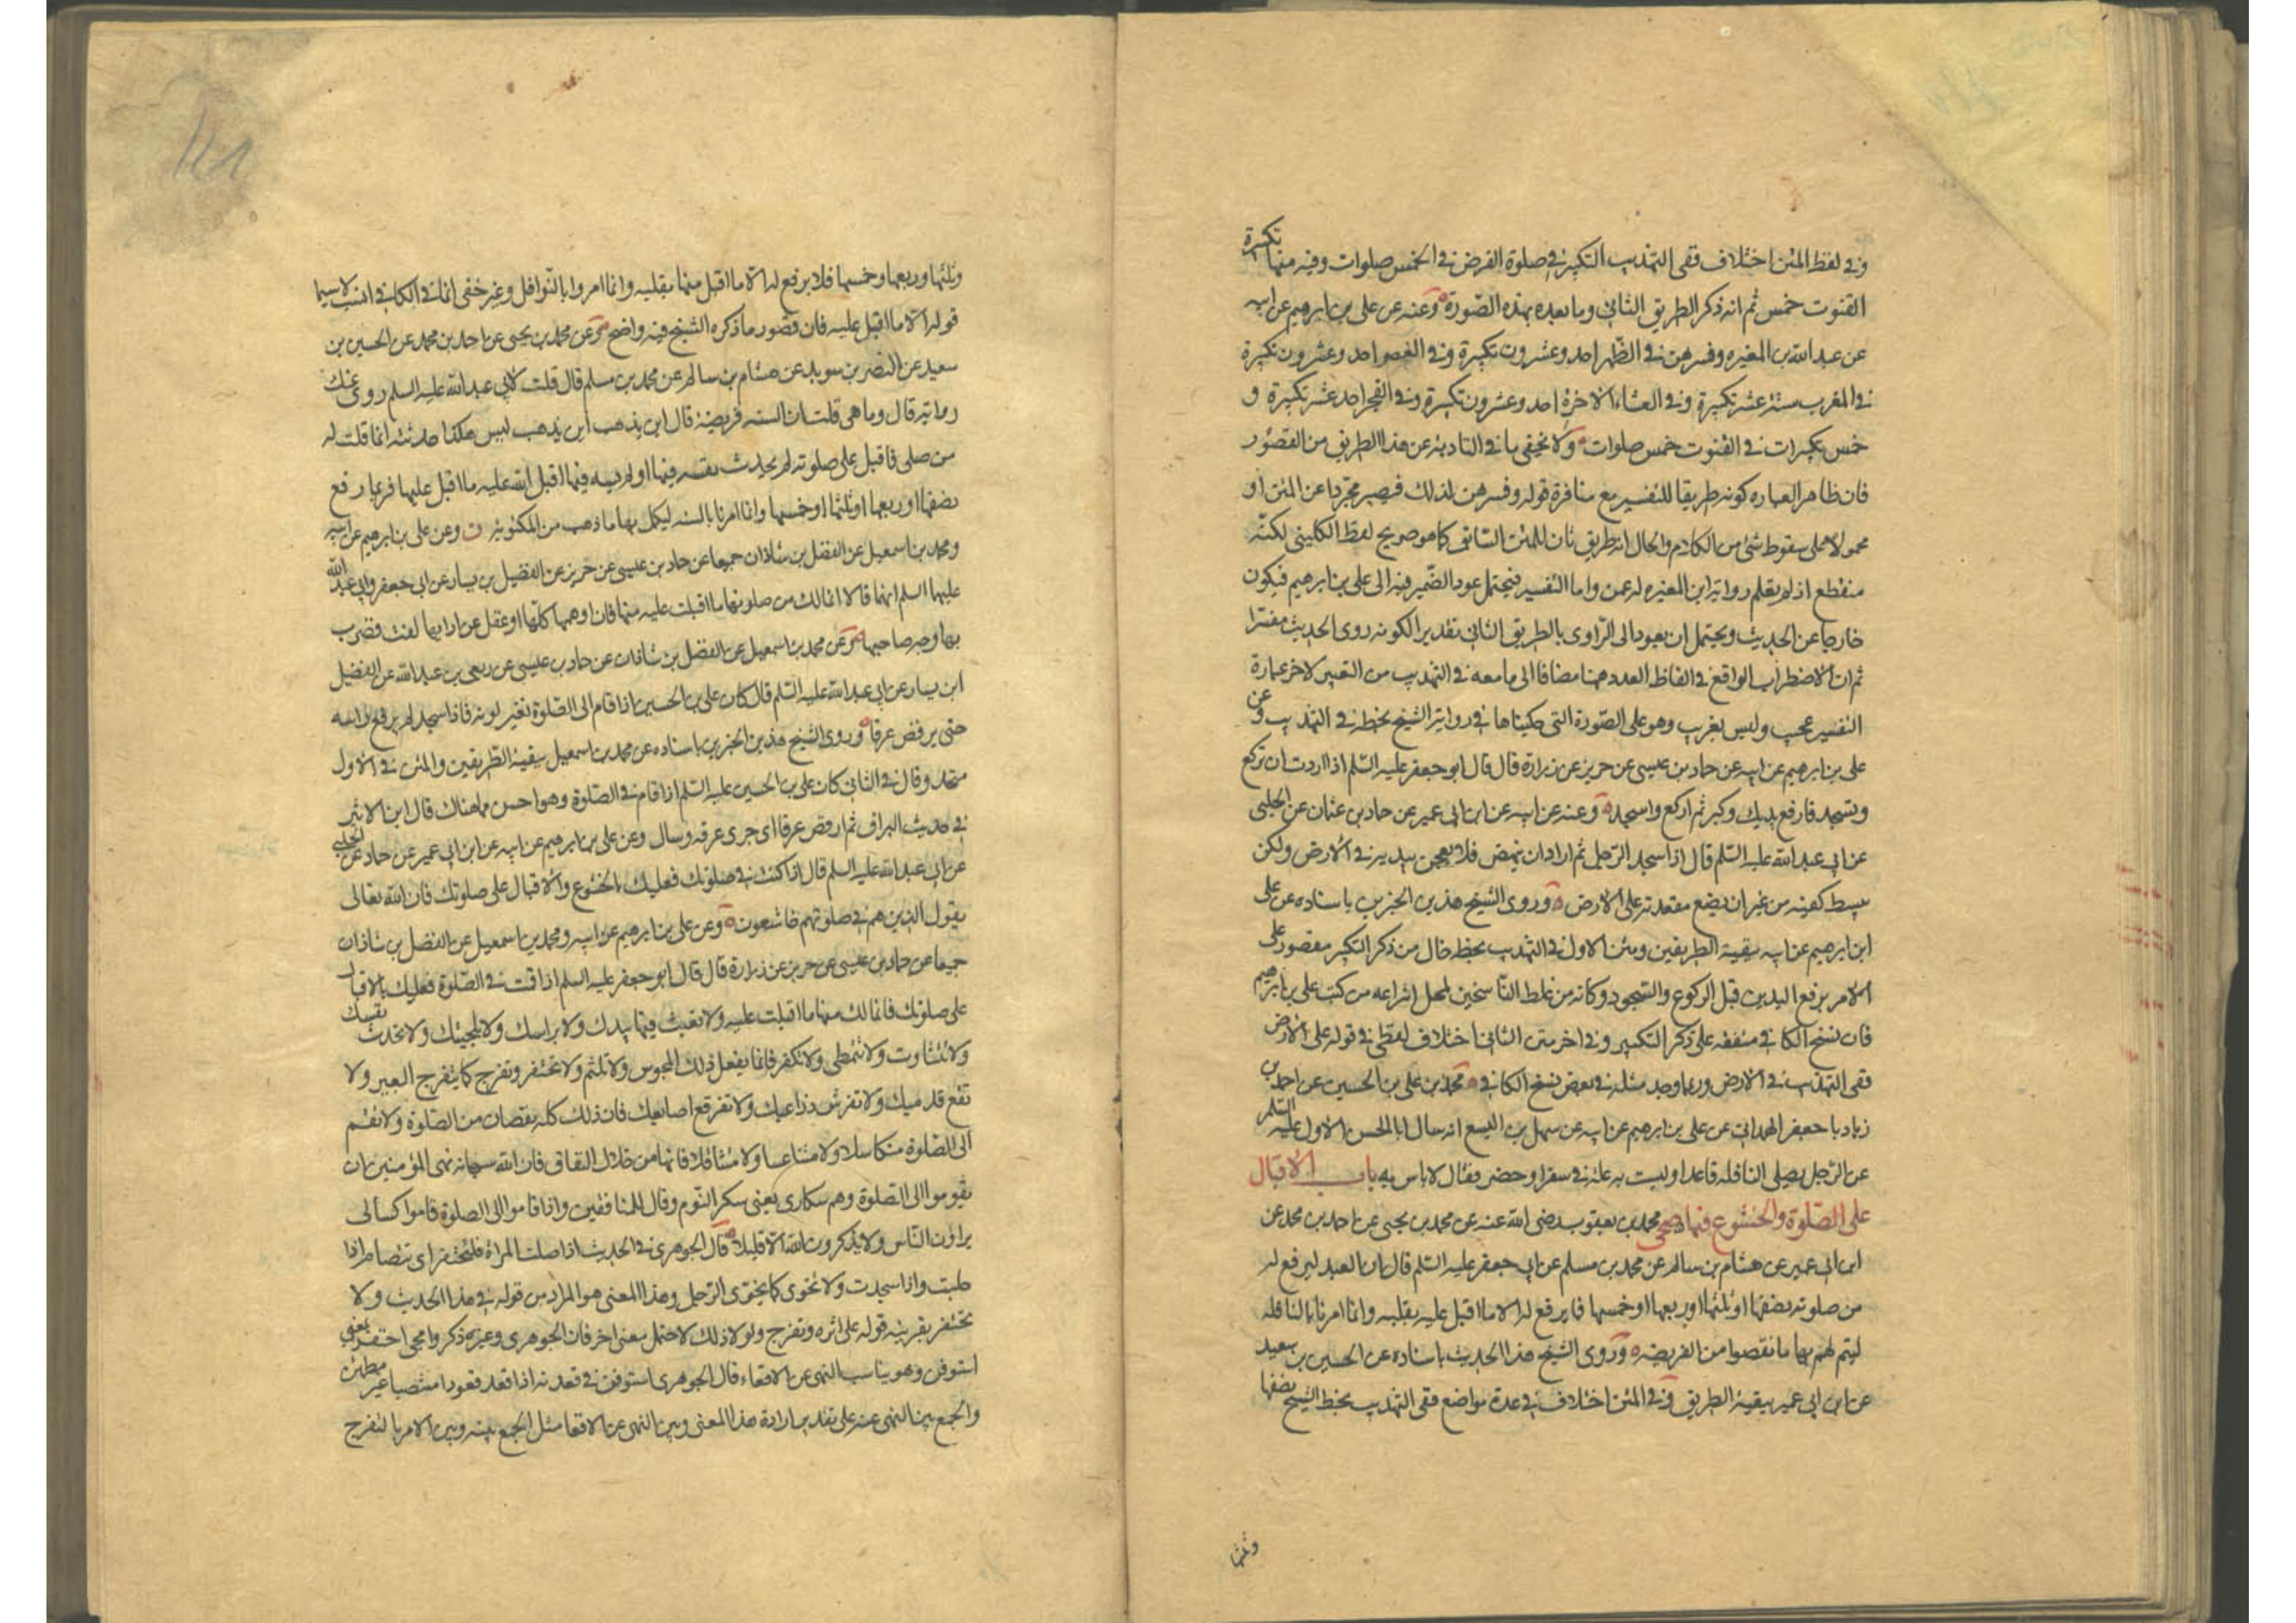 وفي لفظ المتن اختلاف ففي التهذيب التكبير في صلوة الفرض في الخمس صلوات وفيه منها تكبيرة
القنوت خمس ثم انه ذكر الطريق الثاني وما بعده بهذه الصورة وعنه عن علي بن ابرهيم عن ابيه
عن عبد الله بن المغيره وفسرهن في الظهر احد وعشرون تكبيرة وفي العصر احد وعشرون تكبيرة
في المغرب ستة عشر تكبيرة وفي العشاء الاخرة احد وعشرون تكبيرة وفي الفجر احد عشر تكبيرة و
خمس تكبيرات في القنوت خمس صلوات ولا يخفى ما في التادية عن هذا الطريق من القصور
فان ظاهر العباره كونه طريقا للتفسير مع منافرة قوله وفسرهن لذلك فيصير مجردا عن المتن او
محمولا على سقوط شئ من الكلام والحال انه طريق ثان للمتن السابق كما هو صريح لفظ الكليني لكنه
منقطع اذ لم يعلم رواية ابن المغيره له عمن واما التفسير فيحتمل عود الضمير فيه الى علي بن ابرهيم فيكون
خارجا عن الحديث ويحتمل ان يعود الى الراوي بالطريق الثاني تقديرا لكونه روى الحديث مفسرا
ثم ان الاضطراب الواقع في الفاظ العدد ههنا مضافا الى ما معه في التهذيب من التغيير لاخر عبارة
التفسير عجيب وليس بغريب وهو على الصورة التي حكيناها في رواية الشيخ بخطه في التهذيب وعن
علي بن ابرهيم عن ابيه عن حماد بن عيسى عن حريز عن زرارة قال قال ابو جعفر عليه السلم اذا اردت ان تركع
وتسجد فارفع يديك وكبر ثم اركع واسجد وعنه عن ابيه عن ابن ابي عمير عن حماد بن عثمان عن الحلبي
عن ابي عبد الله عليه السلم قال اذا سجد الرجل ثم اراد ان ينهض فلا يعجن بيديه في الارض ولكن
يبسط كفيه من غير ان يضع مقعدته على الارض وروى الشيخ هذين الخبرين باسناده عن علي
ابن ابرهيم عن ابيه ببقية الطريقين ومتن الاول في التهذيب بخطه خال من ذكر التكبير مقصور على
الامر برفع اليدين قبل الركوع والسجود وكانه من غلط الناسخين لمحل انتزاعه من كتب علي بن ابرهيم
فان نسخ الكافي متفقه على ذكر التكبير وفي اخر متن الثاني اختلاف لفظي في قوله على الارض
ففي التهذيب في الارض وربما وجد مثله في بعض نسخ الكافي محمد بن علي بن الحسين عن احمد بن
زياد با جعفر الهمداني عن علي بن ابرهيم عن ابيه عن سهل بن اليسع انه سال ابا الحسن الاول عليه السلم
عن الرجل يصلي النافله قاعدا وليست به علة في سفر او حضر فقال لا باس به باب الاقبال
على الصلوة والخشوع فيها صحى محمد بن يعقوب رضى الله عنه عن محمد بن يحيى عن احمد بن محمد عن
ابن ابي عمير عن هشام بن سالم عن محمد بن مسلم عن ابي جعفر عليه السلم قال ان العبد ليرفع له
من صلوته نصفها او ثلثها او ربعها او خمسها فما يرفع له الا ما اقبل عليه بقلبه وانما امرنا بالنافله
ليتم لهم بها ما نقصوا من الفريضه وروى الشيخ هذا الحديث باسناده عن الحسين بن سعيد
عن ابن ابي عمير ببقية الطريق وفي المتن اختلاف في عدة مواضع ففي التهذيب بخط الشيخ نصفها
وثلثها
وثلثها وربعها وخمسها فلا يرفع له الا ما اقبل منها بقلبه وانما امروا بالنوافل وغير خفى ان ما في الكافي انسب لا سيما
قوله الا ما اقبل عليه فان قصور ما ذكره الشيخ فيه واضح وعن محمد بن يحيى عن احمد بن محمد عن الحسين بن
سعيد عن النضر بن سويد عن هشام بن سالم عن محمد بن مسلم قال قلت لابي عبد الله عليه السلم روى عنك
رماية قال وما هي قلت ان السنه فريضة قال اين يذهب اين يذهب ليس هكذا حدثته انما قلت له
من صلى فاقبل على صلوته لم يحدث نفسه فيها او لم يسه فيها اقبل الله عليه ما اقبل عليها فربما رفع
نصفها او ربعها او ثلثها او خمسها وانما امرنا بالسنه ليكمل بها ما ذهب من المكتوبة ن وعن علي بن ابرهيم عن ابيه
ومحمد بن اسمعيل عن الفضل بن شاذان جميعا عن حماد بن عيسى عن حريز عن الفضيل بن يسار عن ابي جعفر وابي عبد الله
عليهما السلم انهما قالا انما لك من صلوتها ما اقبلت عليه منها فان اوهمها كلها او غفل عن ادابها لفت فضرب
بها وجه صاحبها وعن محمد بن اسمعيل عن الفضل بن شاذان عن حماد بن عيسى عن ربعى بن عبد الله عن الفضيل
ابن يسار عن ابي عبد الله عليه السلم قال كان علي بن الحسين اذا قام الى الصلوة تغير لونه فاذا سجد لم يرفع راسه
حتى يرفض عرقا وروى الشيخ هذين الخبرين باسناده عن محمد بن اسمعيل ببقية الطريقين والمتن في الاول
متحد وقال في الثاني كان علي بن الحسين عليه السلم اذا قام في الصلوة وهو احسن مما هناك قال ابن الاثير
في حديث البراق ثم ارفض عرقا اى جرى عرقه وسال وعن علي بن ابرهيم عن ابيه عن ابن ابي عمير عن حماد عن الحلبي
عن ابي عبد الله عليه السلم قال اذا كنت في صلوتك فعليك بالخشوع والاقبال على صلوتك فان الله تعالى
يقول الذين هم في صلوتهم خاشعون وعن علي بن ابرهيم عن ابيه ومحمد بن اسمعيل عن الفضل بن شاذان
جميعا عن حماد بن عيسى عن حريز عن زرارة قال قال ابو جعفر عليه السلم اذا قمت في الصلوة فعليك بالاقبال
على صلوتك فانما لك منها ما اقبلت عليه ولا تعبث فيها بيدك ولا براسك ولا بلحيتك ولا تحدث نفسك
ولا تتثاوب ولا تتمطى ولا تكفر فانما يفعل ذلك المجوس ولا تلثم ولا تحتفز وتفرج كما يتفرج البعير ولا
تقع على قدميك ولا تفرش ذراعيك ولا تفرقع اصابعك فان ذلك كله نقصان من الصلوة ولا تقم
الى الصلوة متكاسلا ولا متناعسا ولا متثاقلا فانها من خلال النفاق فان الله سبحانه نهى المؤمنين ان
يقوموا الى الصلوة وهم سكارى يعنى سكر النوم وقال للمنافقين واذا قاموا الى الصلوة قاموا كسالى
يراؤن الناس ولا يذكرون الله الا قليلا قال الجوهرى في الحديث اذا صلت المراة فلتحتفز اى تتضام اذا
جلست واذا سجدت ولا تخوى كما يخوى الرجل وهذا المعنى هو المراد من قوله في هذا الحديث ولا
تحتفز بقرينة قوله على اثره وتفرج ولولا ذلك لاحتمل معنى اخر فان الجوهرى وغيره ذكروا مجئ احتفز بمعنى
استوفز وهو يناسب النهى عن الاقعاء قال الجوهرى استوفز في قعدته اذا قعد قعودا منتصبا غير مطمئن
والجمع بين النهى عنه على تقدير ارادة هذا المعنى وبين النهى عن الاقعا مثل الجمع بينه وبين الامر بالتفرج